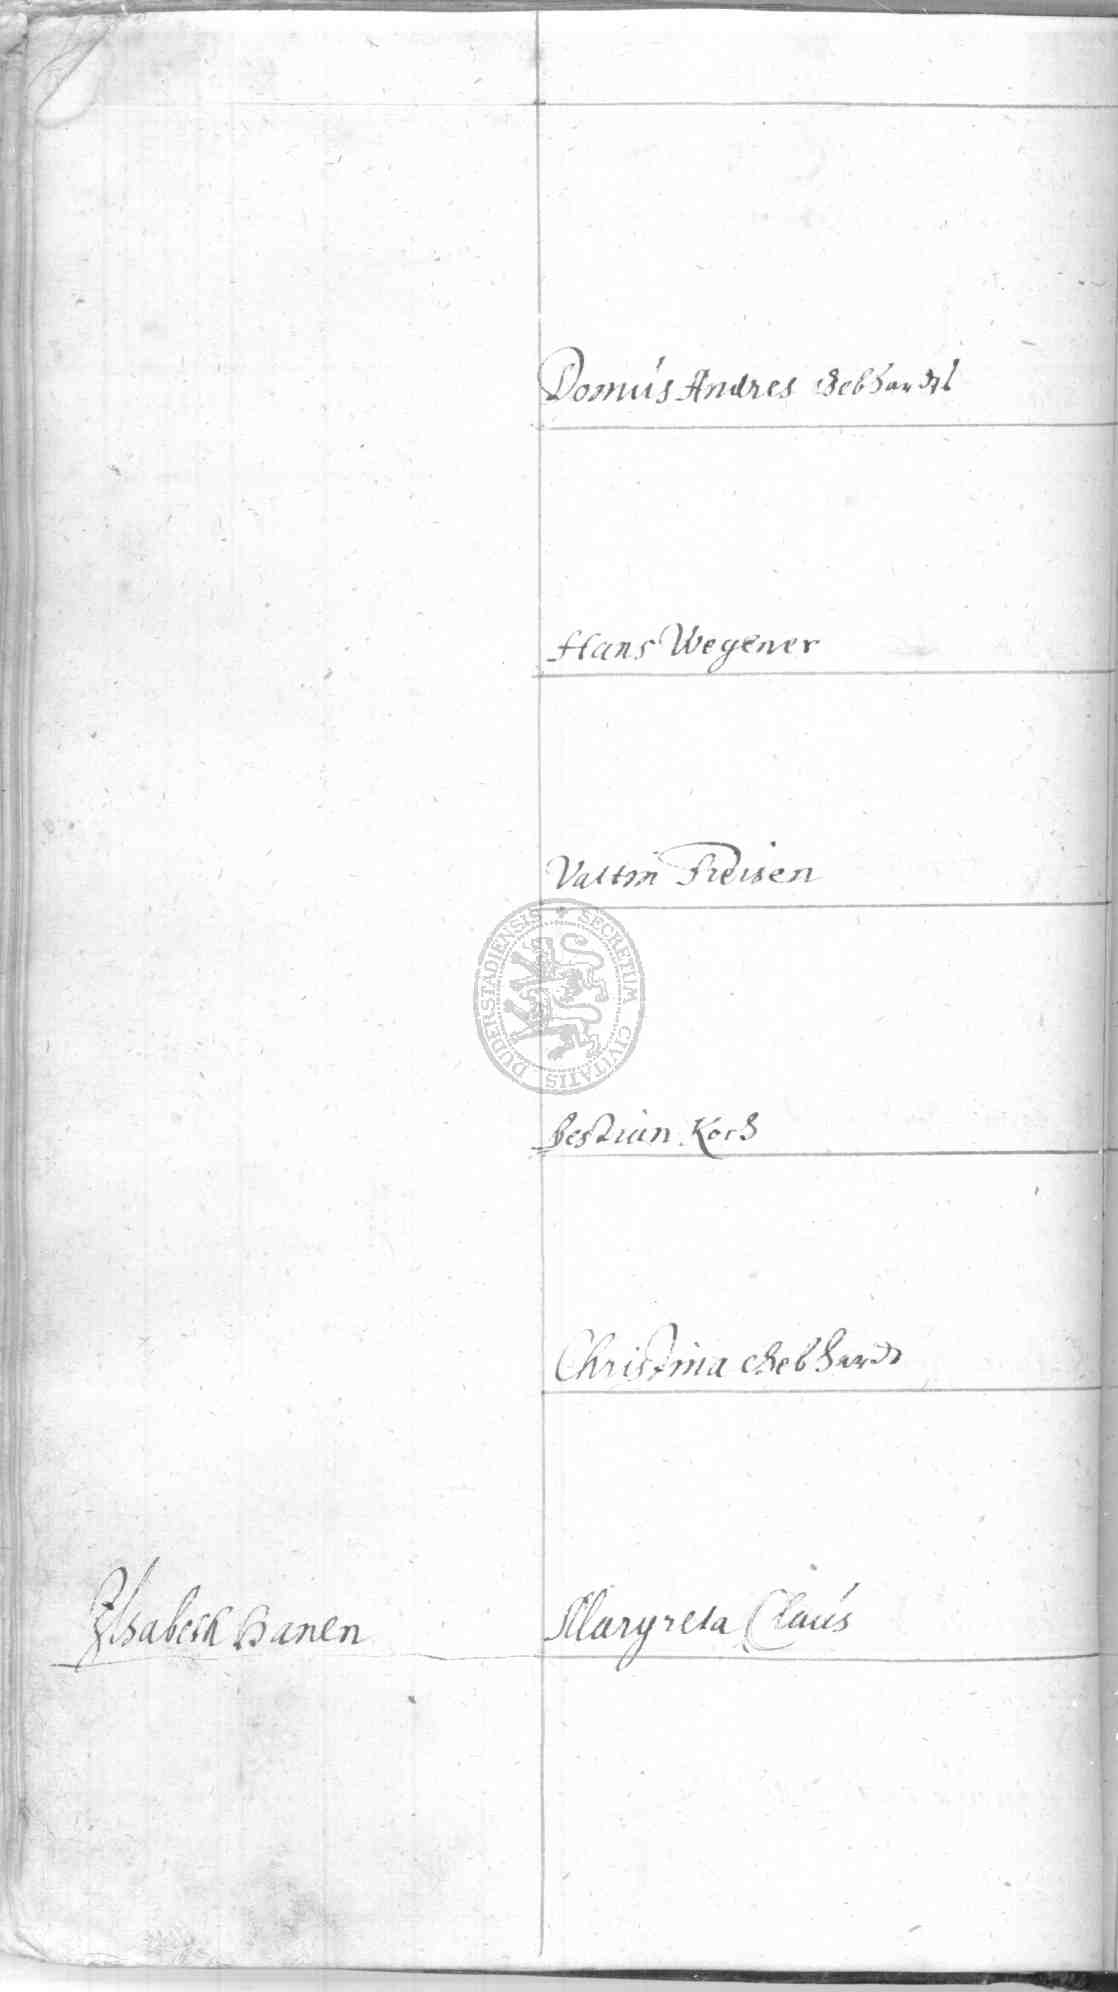 Domus Andres Gebhardt
Hans Wegener
Valtin Freisen
SECRETUM CIVITATIS DUDERSTADIENSIS
Bestian Koch
Christina Gebhardt
Elsabeth Hanen Margreta Claus